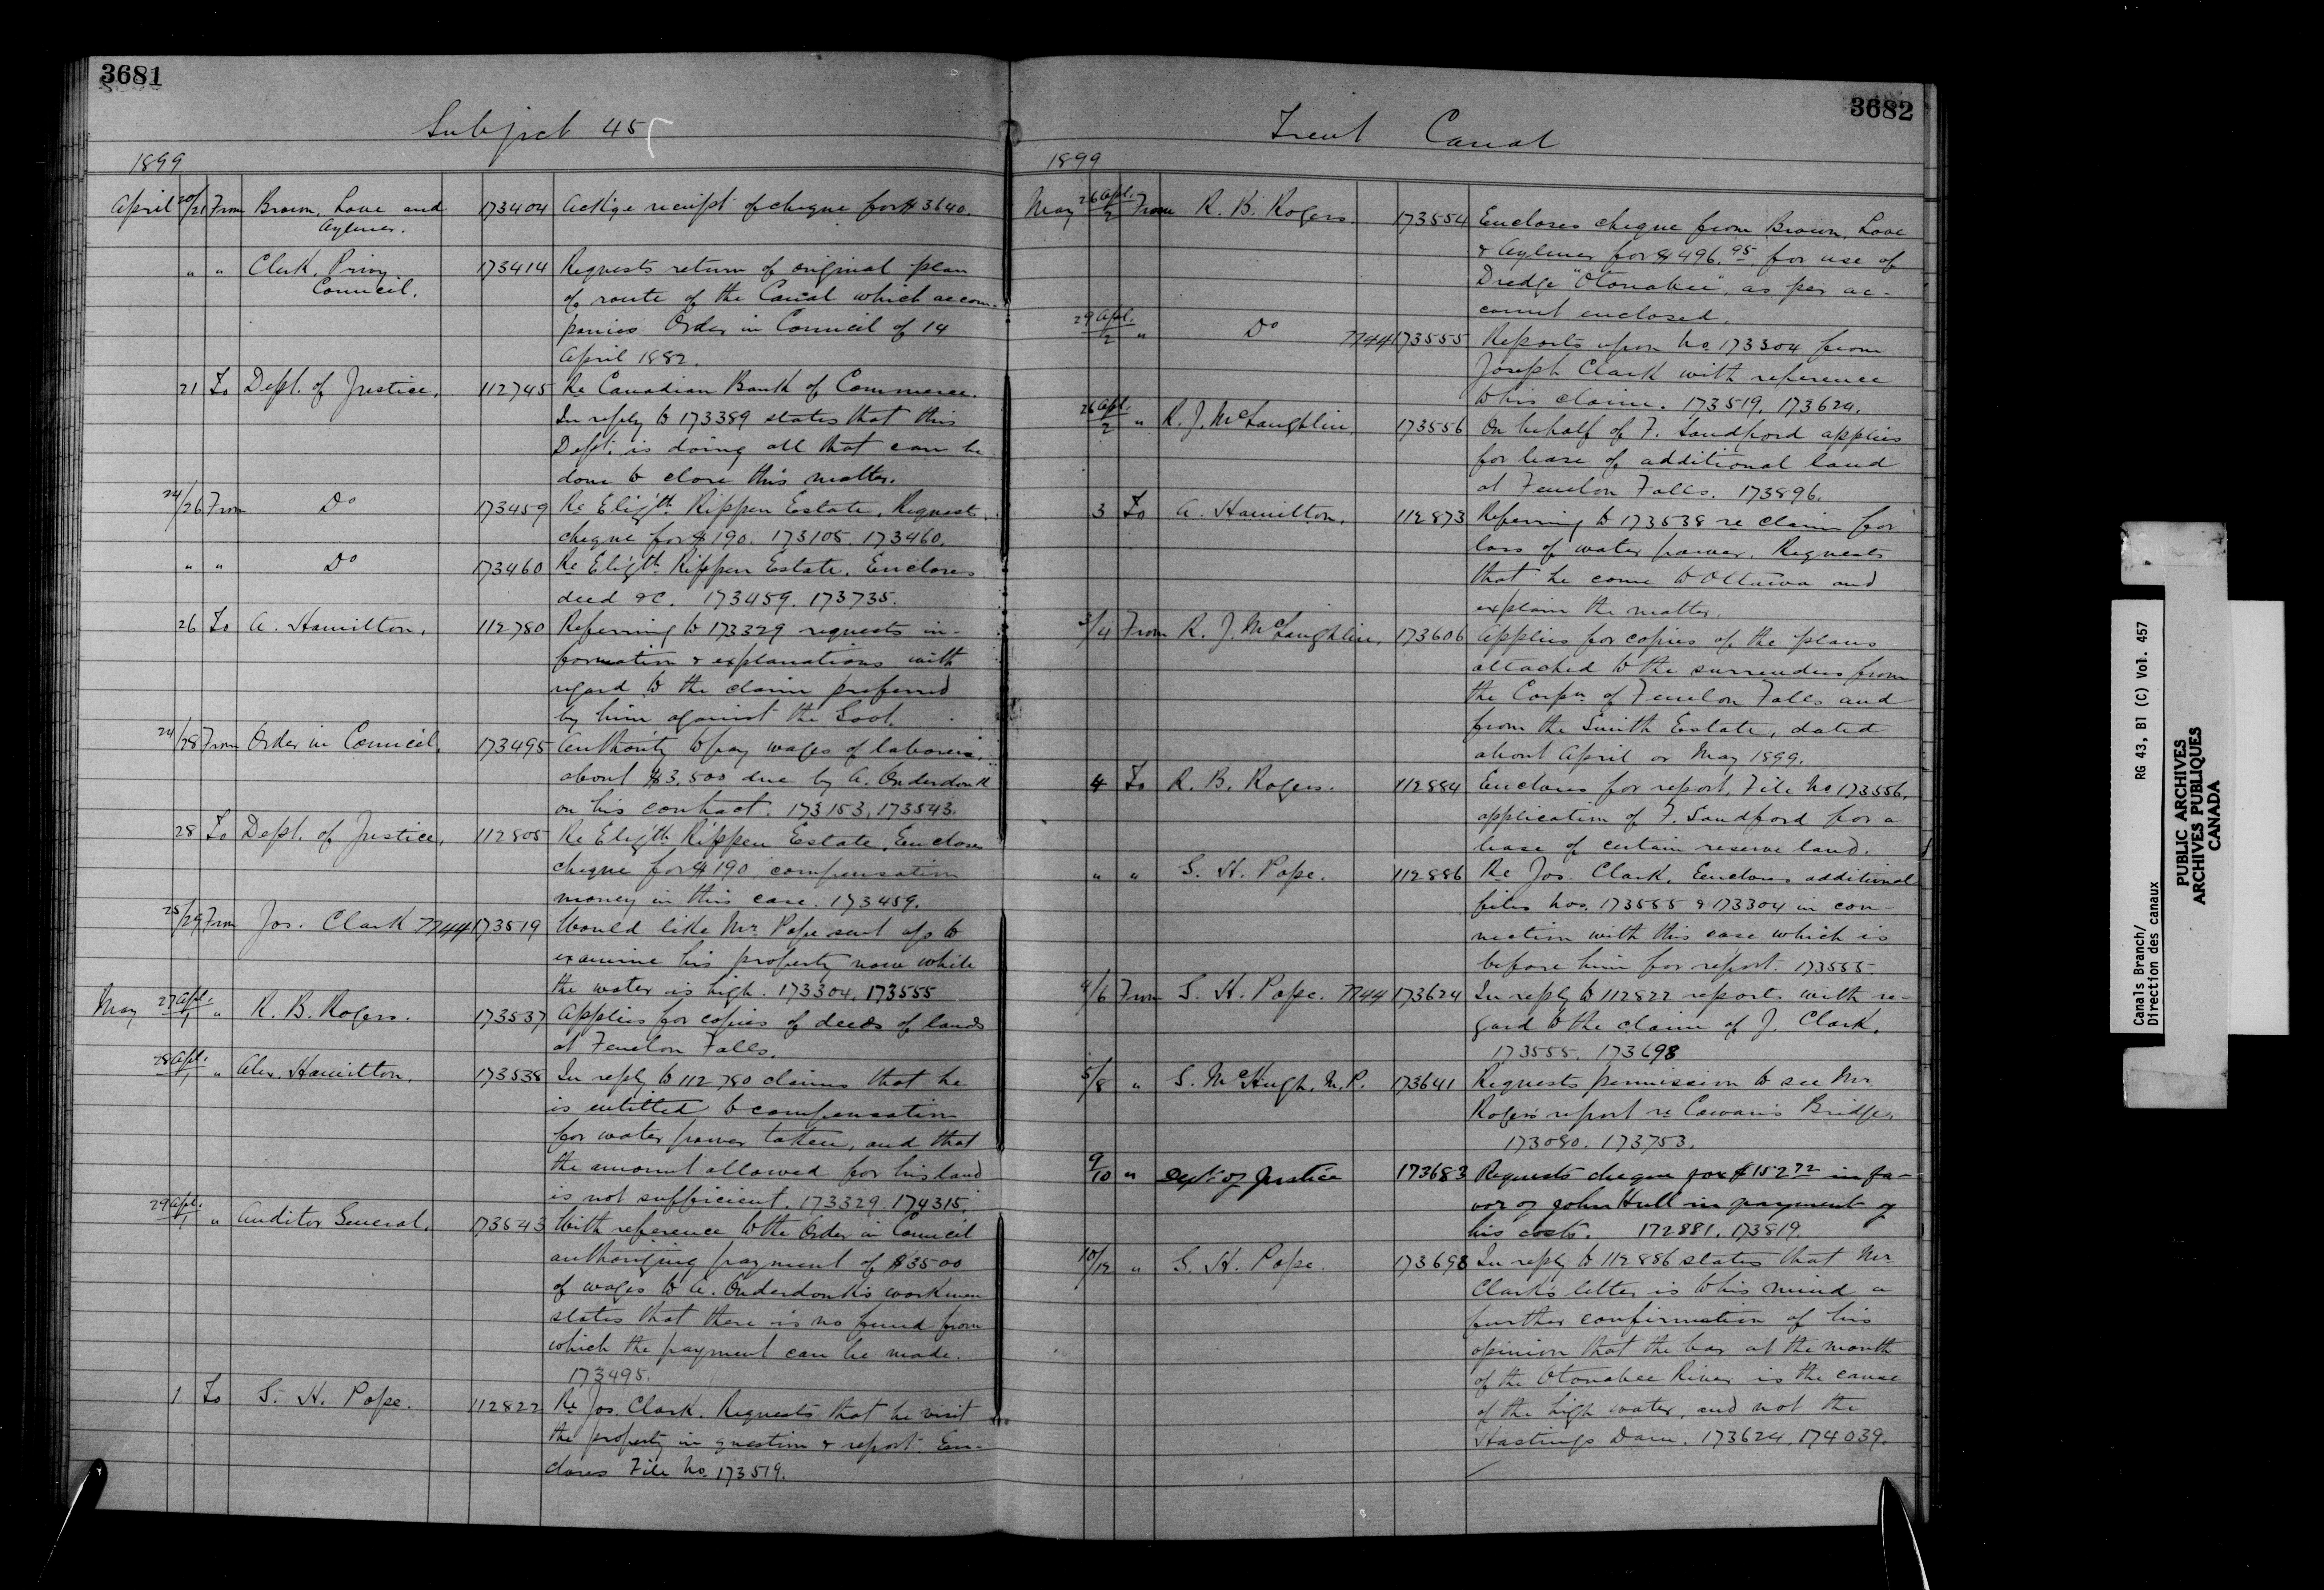 3681
Subject 45
1899
April 20/21 From Brown, Love and 173404 Ackge receipt of cheque for $3640.
Aylmer.
" " Clerk, Privy 173414 Requests return of original plan
Council. of route of the Canal which accom-
panies Order in Council of 14
April 1882.
21 To Dept. of Justice. 112745 Re Canadian Bank of Commerce.
In reply to 173389 states that this
Dept. is doing all that can be
done to close this matter.
24/26 From Do 173459 Re Elizth Rippen Estate. Requests
cheque for $190. 173105. 173460.
" " Do 173460 Re Elizth Rippen Estate. Encloses
deed &c. 173459. 173735.
26 To A. Hamilton. 112780 Referring to 173329 requests in-
formation & explanations with
regard to the claim preferred
by him against the Govt.
24/28 From Order in Council. 173495 Authority to pay wages of laborers,
about $3,500 due by A. Onderdonk
on his contract. 173153, 173543.
28 To Dept. of Justice. 112805 Re Elizth Rippen Estate. Encloses
cheque for $190 compensation
money in this case. 173459.
25/29 From Jos. Clark 7744 173519 Would like Mr. Pope sent up to
examine his property now while
the water is high. 173304. 173555
May 27 Apl./1 " R. B. Rogers. 173537 Applies for copies of deeds of lands
at Fenelon Falls.
28 Apl./1 " Alex. Hamilton. 173538 In reply to 112780 claims that he
is entitled to compensation
for water power taken, and that
the amount allowed for his land
is not sufficient. 173329. 174315.
29 Apl./1 " Auditor General. 173543 With reference to the Order in Council
authorizing payment of $3500
of wages to A. Onderdonk's workmen
states that there is no fund from
which the payment can be made.
173495.
1 To S. H. Pope. 112822 Re Jos. Clark. Requests that he visit
the property in question & report. En-
closes File No. 173519.
3682
Trent Canal
1899
May 26 Apl./2 From R. B. Rogers. 173554 Encloses cheque from Brown, Love
& Aylmer for $496.95 for use of
Dredge "Otonabee", as per ac-
count enclosed.
29 Apl./2 " Do 7744 173555 Reports upon No. 173304 from
Joseph Clark with reference
to his claim. 173519. 173624.
26 Apl./2 " R. J. McLaughlin. 173556 On behalf of F. Sandford applies
for lease of additional land
at Fenelon Falls. 173896.
3 To A. Hamilton. 112873 Referring to 173538 re claim for
loss of water power. Requests
that he come to Ottawa and
explain the matter.
3/4 From R. J. McLaughlin. 173606 Applies for copies of the plans
attached to the surrenders from
the Corpn of Fenelon Falls and
from the Smith Estate, dated
about April or May 1899.
4 To R. B. Rogers. 112884 Encloses for report, File No 173556,
application of F. Sandford for a
lease of certain reserve land.
" " S. H. Pope. 112886 Re Jos. Clark. Encloses additional
files Nos. 173555 & 173304 in con-
nection with this case which is
before him for report. 173555
4/6 From S. H. Pope. 7744 173624 In reply to 112822 reports with re-
gard to the claim of J. Clark.
173555. 173698
5/8 " S. McHugh, M.P. 173641 Requests permission to see Mr
Rogers' report re Cowan's Bridge.
173080. 173753.
9/10 " Dept of Justice 173683 Requests cheque for $152.72 in fa-
vor of John Hull in payment of
his costs. 172881. 173819.
10/12 " S. H. Pope. 173698 In reply to 112886 states that Mr
Clark's letter is to his mind a
further confirmation of his
opinion that the bar at the mouth
of the Otonabee River is the cause
of the high water, and not the
Hastings Dam. 173624. 174039.
Canals Branch/ RG 43, B1 (C) Vol. 457
Direction des canaux
PUBLIC ARCHIVES
ARCHIVES PUBLIQUES
CANADA